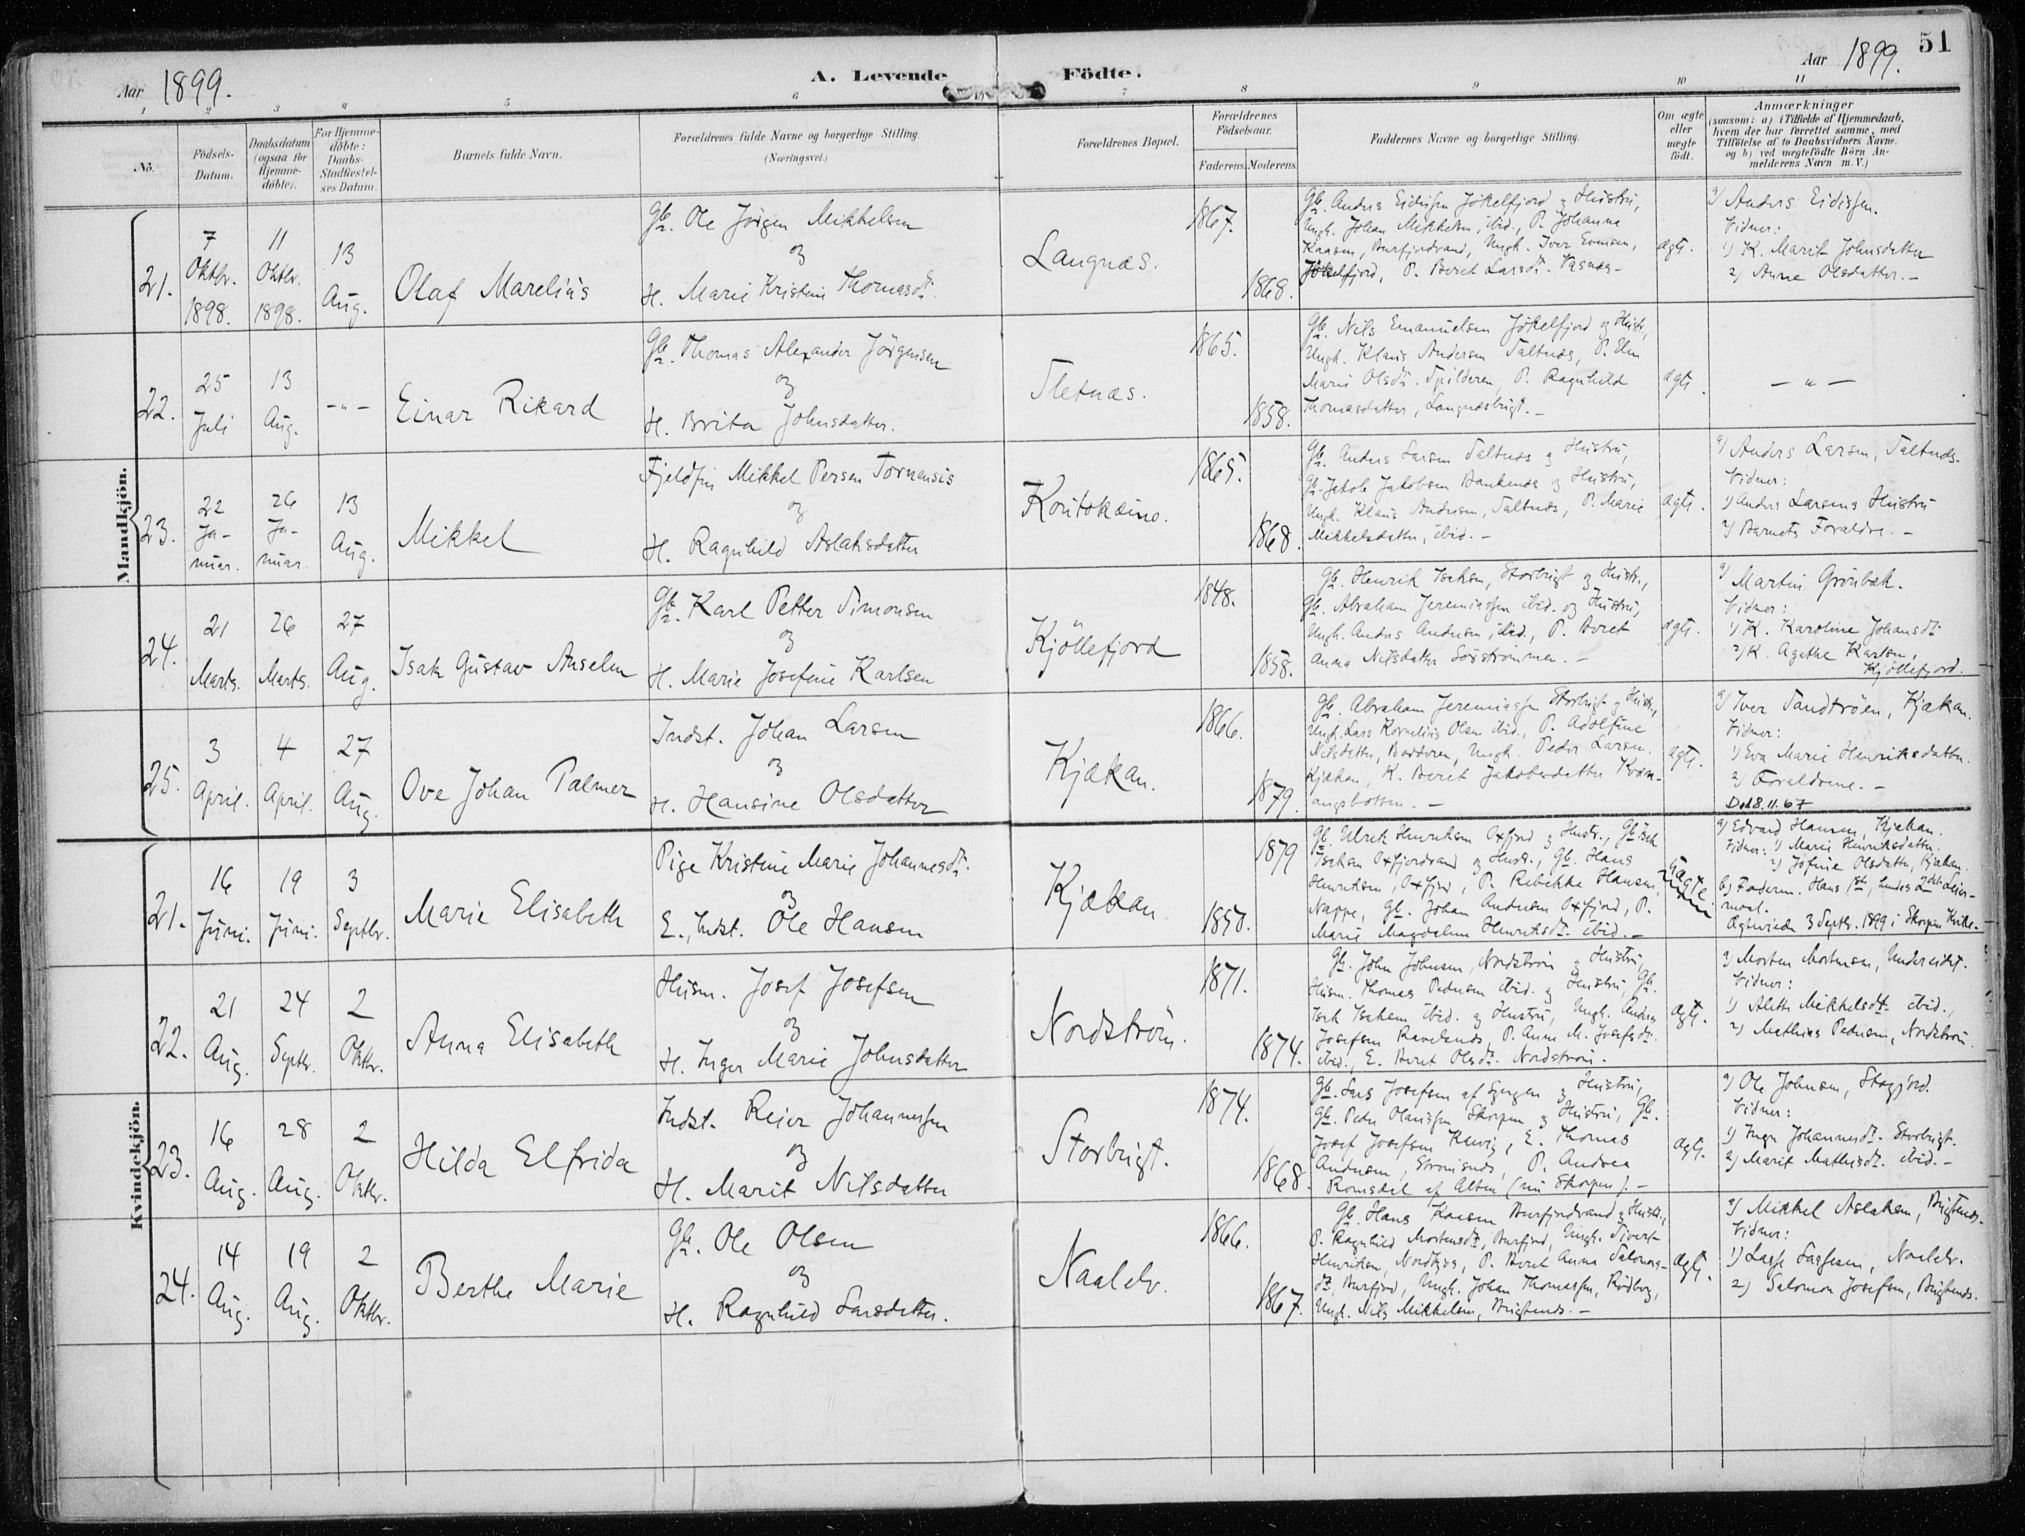 51
Aar 1899.
A. Levende Födte.
Aar 1899.
1 2 3 4 5 6 7 8 9 10 11
No.
Födsels-
Datum.
Daabsdatum
(ogsaa for
Hjemme-
döbte).
For Hjemme-
döbte:
Daabs-
Stadfæstel-
ses Datum.
Barnets fulde Navn.
Forældrenes fulde Navne og borgerlige Stilling.
(Næringsvei.)
Forældrenes Bopæl.
Forældrenes
Födselsaar.
Faderens. Moderens.
Faddernes Navne og borgerlige Stilling.
Om ægte
eller
uægte
födt.
Anmærkninger
(saasom: a) i Tilfælde af Hjemmedaab,
hvem der har forrettet samme, med
Tilföielse af to Daabsvidners Navne,
og b) ved uægtefödte Börn An-
melderens Navn m. V.)
Mandkjön.
21.
7 Oktbr. 1898.
11 Oktbr. 1898.
13 Aug.
Olaf Marelius
Gb. Ole Jörgen Mikkelsen
og
H. Marie Kristine Thomasdt.
Langnæs.
1867.
1868.
Gb. Anders Eidissen Jökelfjord og Hustru,
Ungk. Johan Mikkelsen, ibid., P. Johanna
Kaasen, Burfjordvand, Ungk. Iver Evensen,
Jökelfjord, P. Beret Larsdt.
ægt.
a) Anders Eidissen.
Vidner:
1) K. Marit Johnsdatter
2) Anne Olsdatter. -
22.
25 Juli
13 Aug.
- " -
Einar Rikard
Gb. Thomas Alexander Jörgensen
og
H. Brita Johnsdatter.
Sletnæs.
1865.
1858.
Gb. Nils Emanuelsen Jökelfjord og Hustr.,
Ungk. Klaus Andersen Saltnæs, P.
Marie Olsdt. Spilderen, P. Ragnhild
Thomasdatter, Langnæsbugt. -
ægt.
- " -
23.
22 Ja-nuar.
26 Ja-nuar.
13 Aug.
Mikkel
Fjeldfin Mikkel Persen Tornensis
og
H. Ragnhild Aslaksdatter
Koutokæino.
1865.
1868.
Gb. Anders Larsen Saltnæs og Hustru,
Gb. Jakob Jakobsen og Hustru,
Ungk. Klaus Andersen, Saltnæs, P. Marie
Mikkelsdatter, ibid. -
ægt.
a) Anders Larsen, Saltnæs.
Vidner:
1) Anders Larsens Hustru
2) Barnets Forældre. -
24.
21 Marts.
26 Marts.
27 Aug.
Isak Gustav Anselm
Gb. Karl Petter Simonsen
og
H. Marie Josefine Karlsen
Kjöllefjord
1848.
1858.
Gb. Henrik Isaksen, Storbugt og Hustr.,
Gb. Abraham Jeremiassen ibid. og Hustru,
Ungk. Anders Andersen, ibid., P. Beret
Anna Nilsdatter Sörströmmen. -
ægt.
a) Martin Grönbæk.
Vidner:
1) K. Karoline Johansdt.
2) K. Agathe Karlsen,
Kjöllefjord.
25.
3 April.
4 April.
27 Aug.
Ove Johan Palmer
Indst. Johan Larsen
og
H. Hansine Olsdatter
Kjækan.
1866.
1879.
Gb. Abraham Jeremiassen Storbugt og Hustru,
Ungk. Lars Kornelius Olsen ibid., P. Adolfine
Nilsdatter, Badderen, Ungk. Peder Larsen,
Kjækan, K. Beret Jakobsdatter Kvæn-
angsbotten. -
ægt.
a) Iver Sandtröen, Kjækan.
Vidner:
1) Eva Marie Henriksdatter
2) Forældrene. -
Död 8.11.67
Kvindekjön.
21.
16 Juni.
19 Juni.
3 Septbr.
Marie Elisabeth
Pige Kristine Marie Johannesdt.
og
E., Indst. Ole Hansen
Kjækan
1879
1850.
Gb. Ulrik Henriksen Oxfjord og Hustr., Gb. Isak
Isaksen Oxfjordvand og Hustr., Gb. Hans
Henriksen, Oxfjord, P. Rebekka Hansen,
Nappe, Gb. Johan Andersen Oxfjord, P.
Marie Magdalene Henriksdt. ibid. -
uægte
a) Edvard Hansen, Kjækan.
Vidner: 1) Marie Henriksdatter.
2) Josefine Olsdatter, Kjækan.
b) Faderen. Hans 1ste, hendes 2det Leier-
maal.
Ægteviede 3 Septbr. 1899 i Skorpen Kirke.
22.
21 Aug.
24 Septbr.
2 Oktbr.
Anna Elisabeth
Husm. Josef Josefsen
og
H. Inger Marie Johnsdatter
Nordström.
1871.
1874.
Gb. John Johnsen, Nordström og Hustru,
Husm. Thomas Pedersen ibid. og Hustru, Gb.
Isak Isaksen ibid. og Hustru, Ungk. Anders
Josefsen, P. Anne M. Josefsdt.
ibid., E. Beret Olsdt. Nordström. -
ægt.
a) Morten Mortensen, Undereidet.
Vidner:
1) Aleth Mikkelsdt. ibid.,
2) Mathias Pedersen, Nordström.
23.
16 Aug.
28 Aug.
2 Oktbr.
Hilda Elfrida
Indst. Reier Johannessen
og
H. Marit Nilsdatter
Storbugt.
1874.
1868.
Gb. Lars Josefsen af Lyngen og Hustru,
Gb. Peder Olaussen Skorpen og Hustru, Gb.
Josef Josefsen, E. Thomas
Andersen, P. Andrea
Romsdal af Alten (nu Skorpen). -
ægt.
a) Ole Johnsen, Stogfjord.
Vidner:
1) Inger Johannesdt. Storbugt.
2) Marit Mathisdt. ibid. -
24.
14 Aug.
19 Aug.
2 Oktbr.
Berthe Marie
Gb. Ole Olsen
og
H. Ragnhild Larsdatter.
Naalelv.
1866.
1867.
Gb. Hans Kaasen Burfjordvand og Hustr.,
P. Ragnhild Mortensdt., Burfjord, Ungk. Sivert
Henriksen, P. Beret Anna Salomons-
dt., Burfjord, Ungk. Johan Thomassen, Rödberg,
Ungk. Nils Mikkelsen, Bugtenes. -
ægt.
a) Mikkel Aslaksen, Bugtenes.
Vidner:
1) Lasse Lassesen, Naalelv.
2) Salomon Josefsen, Bugtenes.